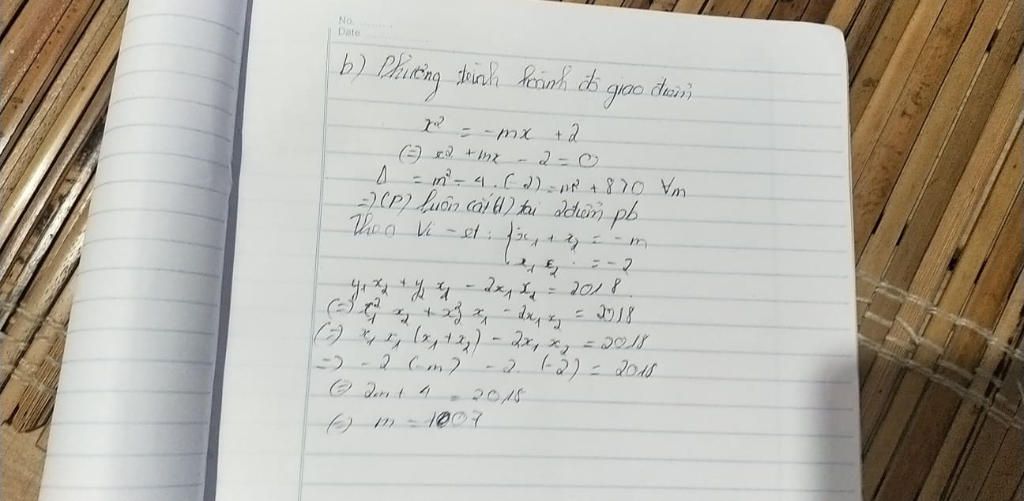 No. ..........
Date ....................
b) Phương trình hoành độ giao điểm
x² = -mx + 2
(=) x² + mx - 2 = 0
Δ = m² - 4 . (-2) = m² + 8 > 0 ∀m
=> (P) luôn cắt (d) tại 2 điểm pb
Theo Vi-et : { x₁ + x₂ = -m
x₁ x₂ = -2
y₁ x₂ + y₂ x₁ - 2x₁ x₂ = 2018
(=) x₁² x₂ + x₂² x₁ - 2x₁ x₂ = 2018
(=) x₁ x₁ (x₁ + x₂) - 2x₁ x₂ = 2018
=) - 2 (-m) - 2 . (-2) = 2018
(=) 2m + 4 = 2018
(=) m = 1007